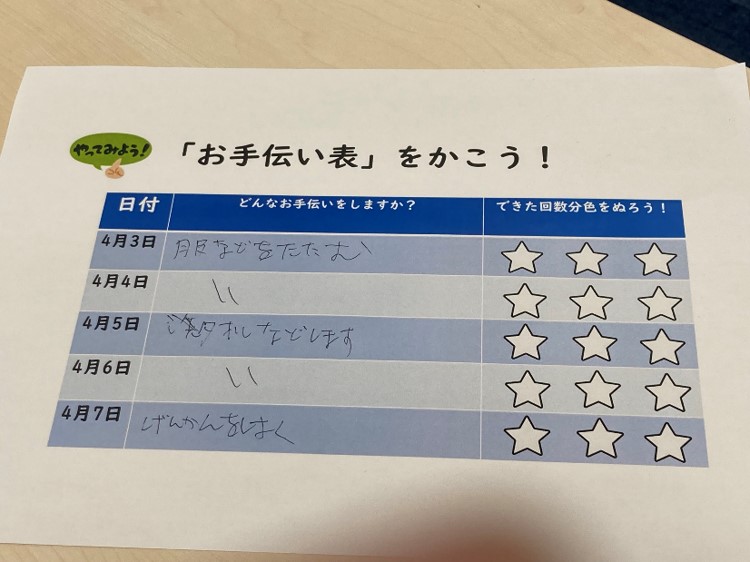 やってみよう!
「お手伝い表」をかこう!
日付 どんなお手伝いをしますか? できた回数分色をぬろう!
4月3日 服などをたたむ
4月4日 〃
4月5日 などします
4月6日 〃
4月7日 げんかんをはく